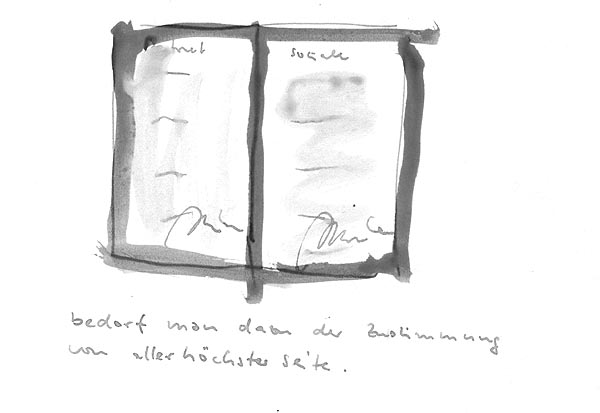 soziale
bedarf man dazu der Zustimmung
von allerhöchster seite.